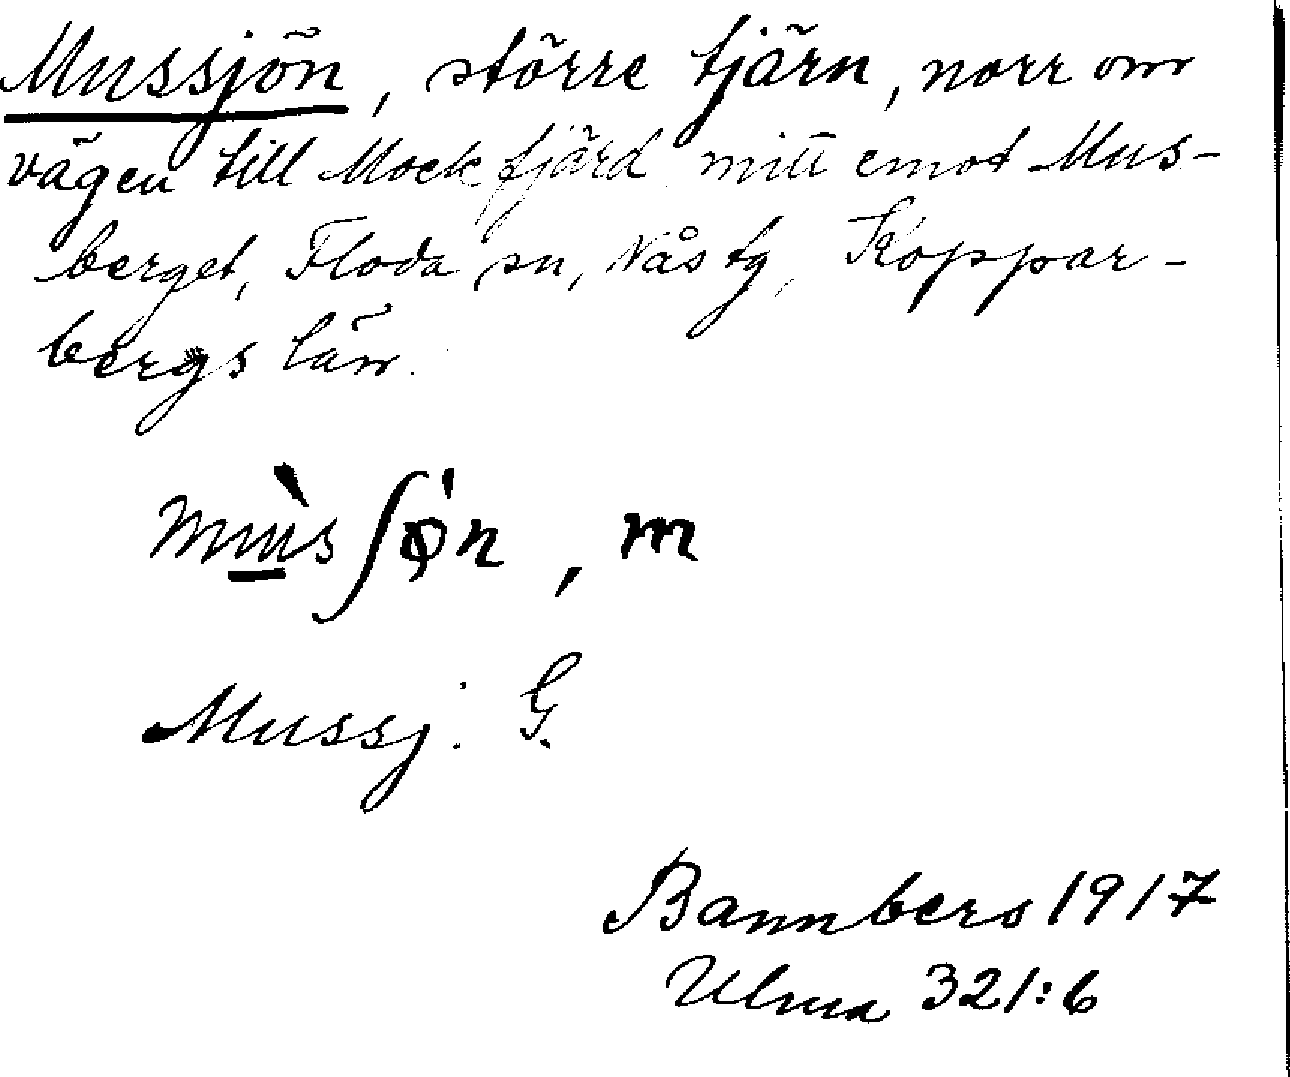 Mussjön, större tjärn, norr om
vägen till Mockfjärd mitt emot Mus-
berget, Floda sn, Nås tg, Koppar-
bergs län.
mùsʃǿn, m
Mussj. G.
Bannbers 1917
Ulma 321:6